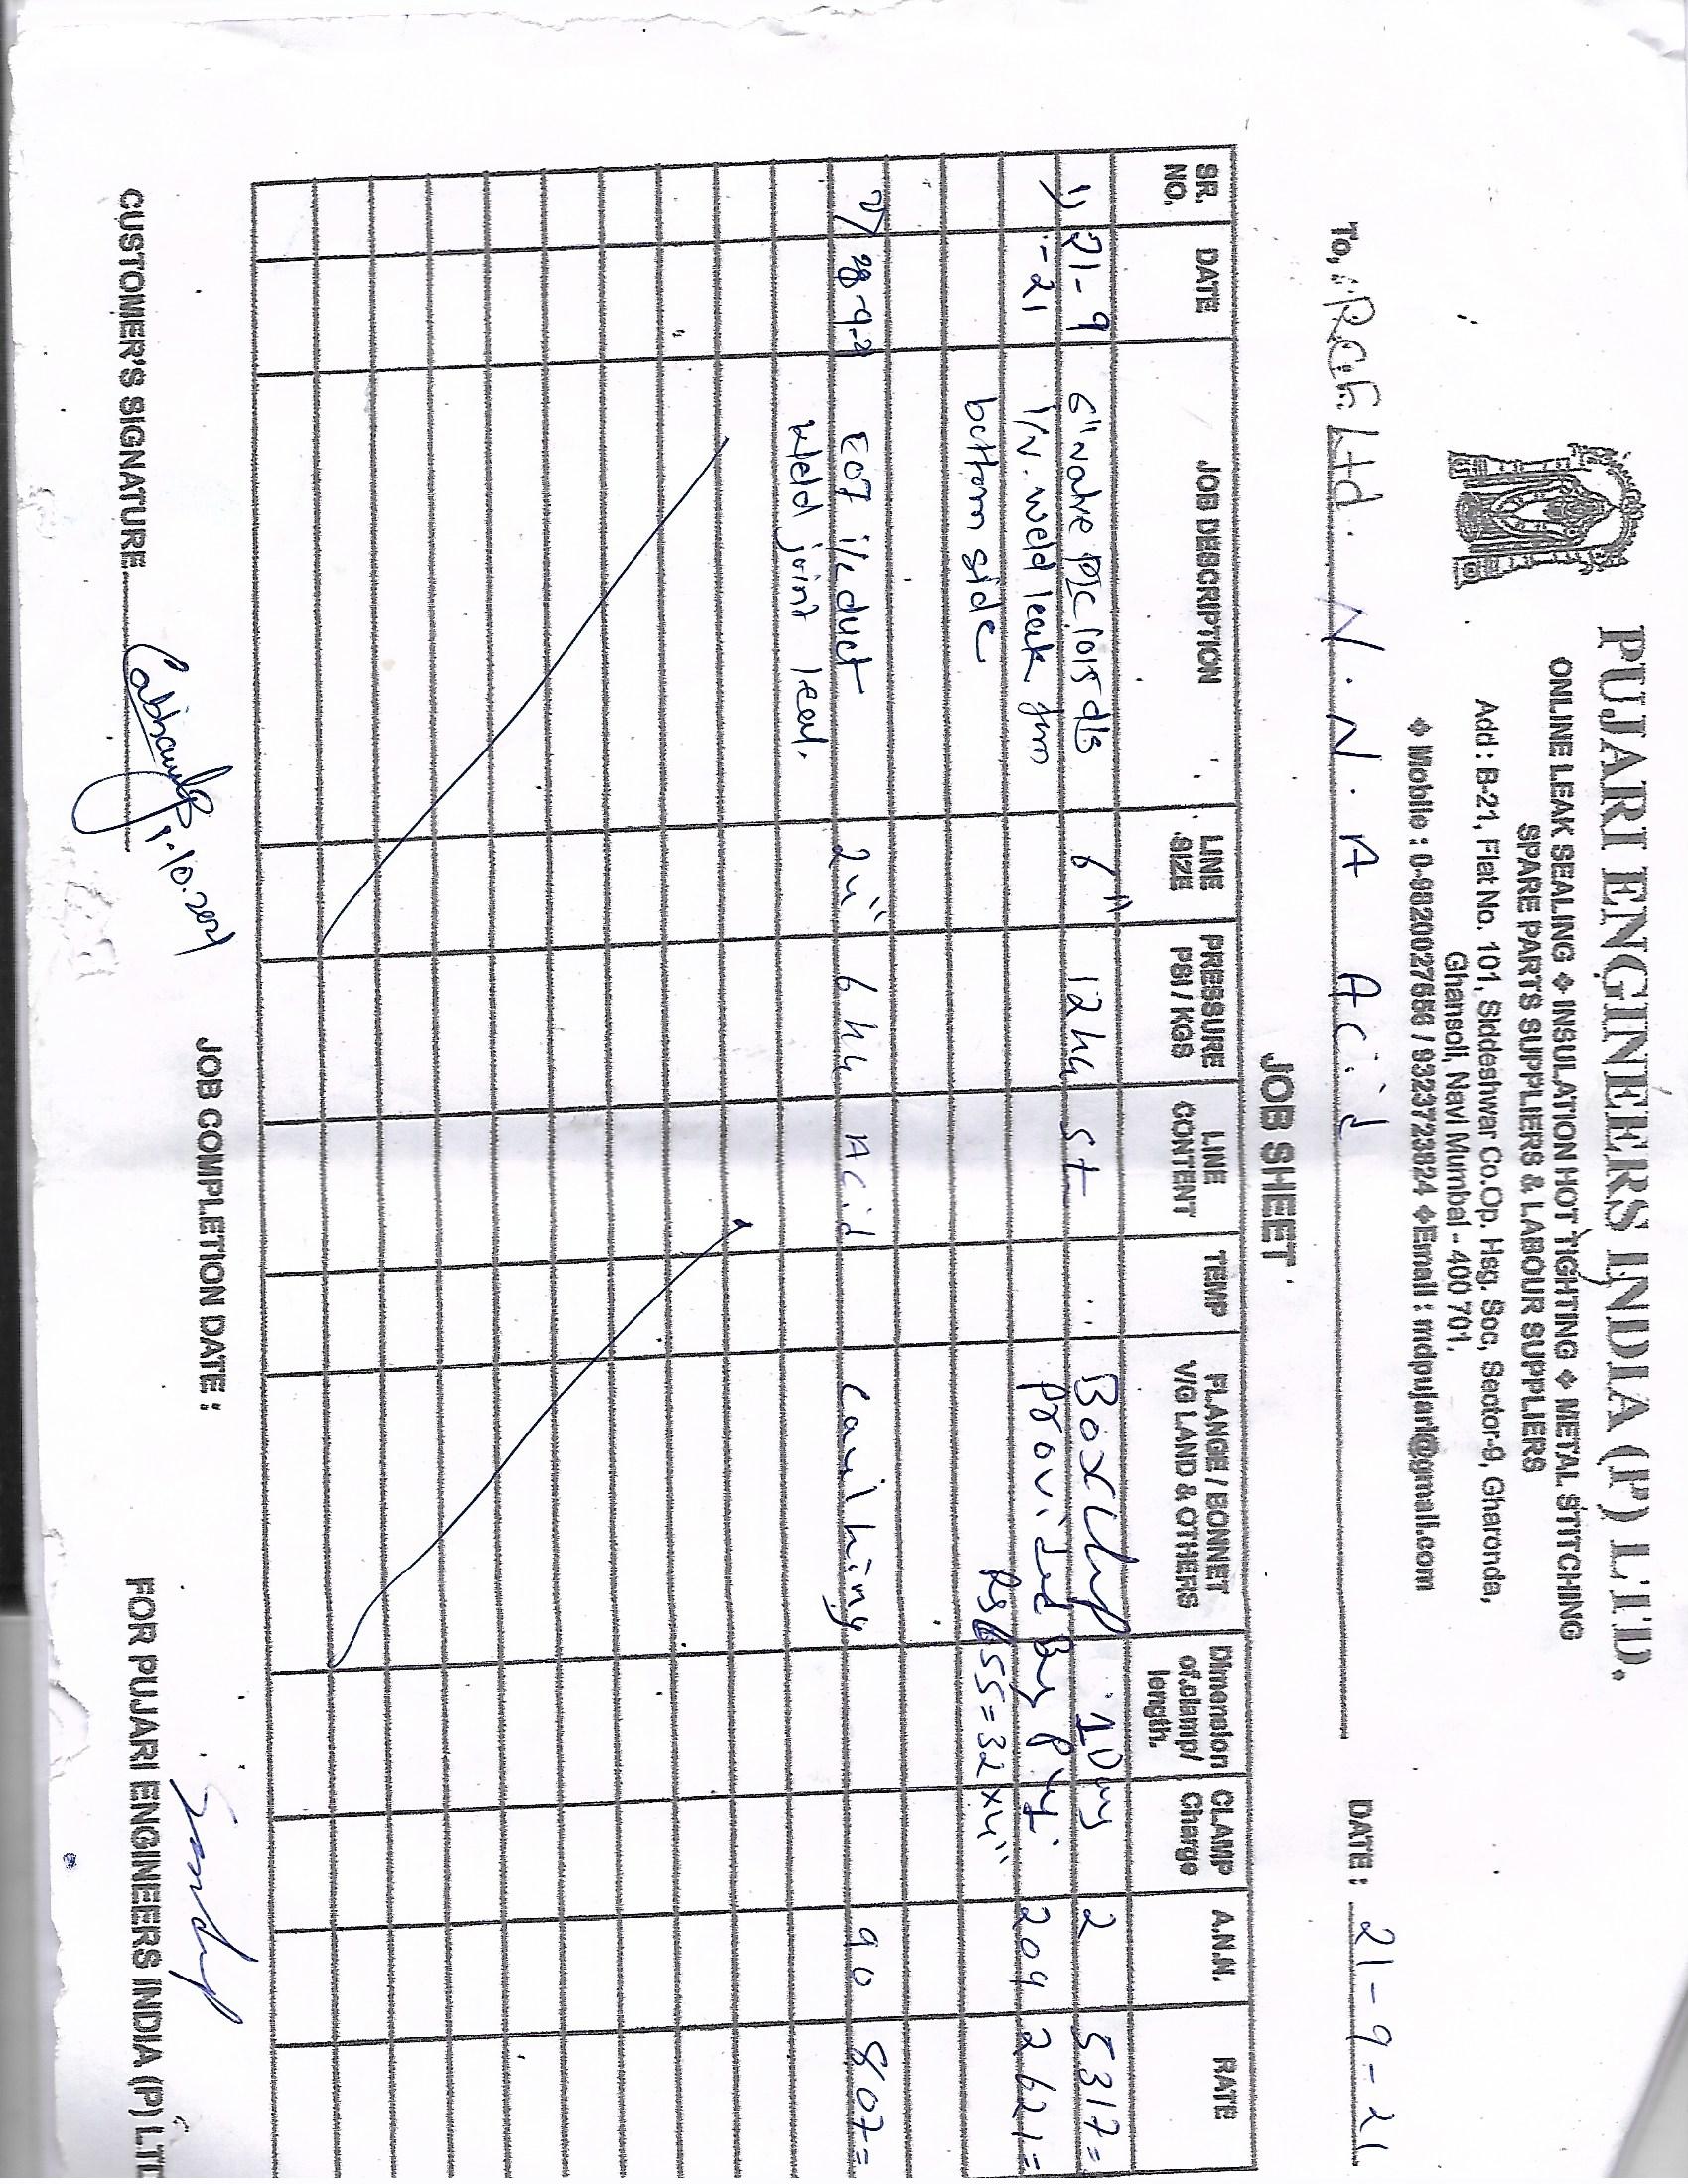 PUJARI ENGINEERS INDIA (P) LTD.
ONLINE LEAK SEALING ❖ INSULATION HOT TIGHTING ❖ METAL STITCHING
SPARE PARTS SUPPLIERS & LABOUR SUPPLIERS
Add : B-21, Flat No. 101, Siddeshwar Co.Op. Hsg. Soc, Sector-9, Gharonda,
Ghansoli, Navi Mumbai - 400 701.
❖ Mobile : 0-9820027656 / 9323723824 ❖ Email : mdpujari@gmail.com
To, R.C.F. Ltd. N. N. A Acid DATE : 21-9-21
JOB SHEET
SR. NO. DATE JOB DESCRIPTION LINE SIZE PRESSURE PSI / KGS LINE CONTENT TEMP FLANGE / BONNET V/G LAND & OTHERS Dimension of.clamp/ length. CLAMP Charge A.N.N. RATE
1) 21-9 6" valve PIC 1015 d/s 6" 12 kg st .. Box 10 2 5317=
-21 weld leak from Provided By 209 2621=
bottom side 55=32x4"
2) 28-9-2 E07 i/c duct 24" 6 kg Acid Caulking 90 807=
weld joint leak.
CUSTOMER'S SIGNATURE 1.10.2021 JOB COMPLETION DATE : FOR PUJARI ENGINEERS INDIA (P) LTD